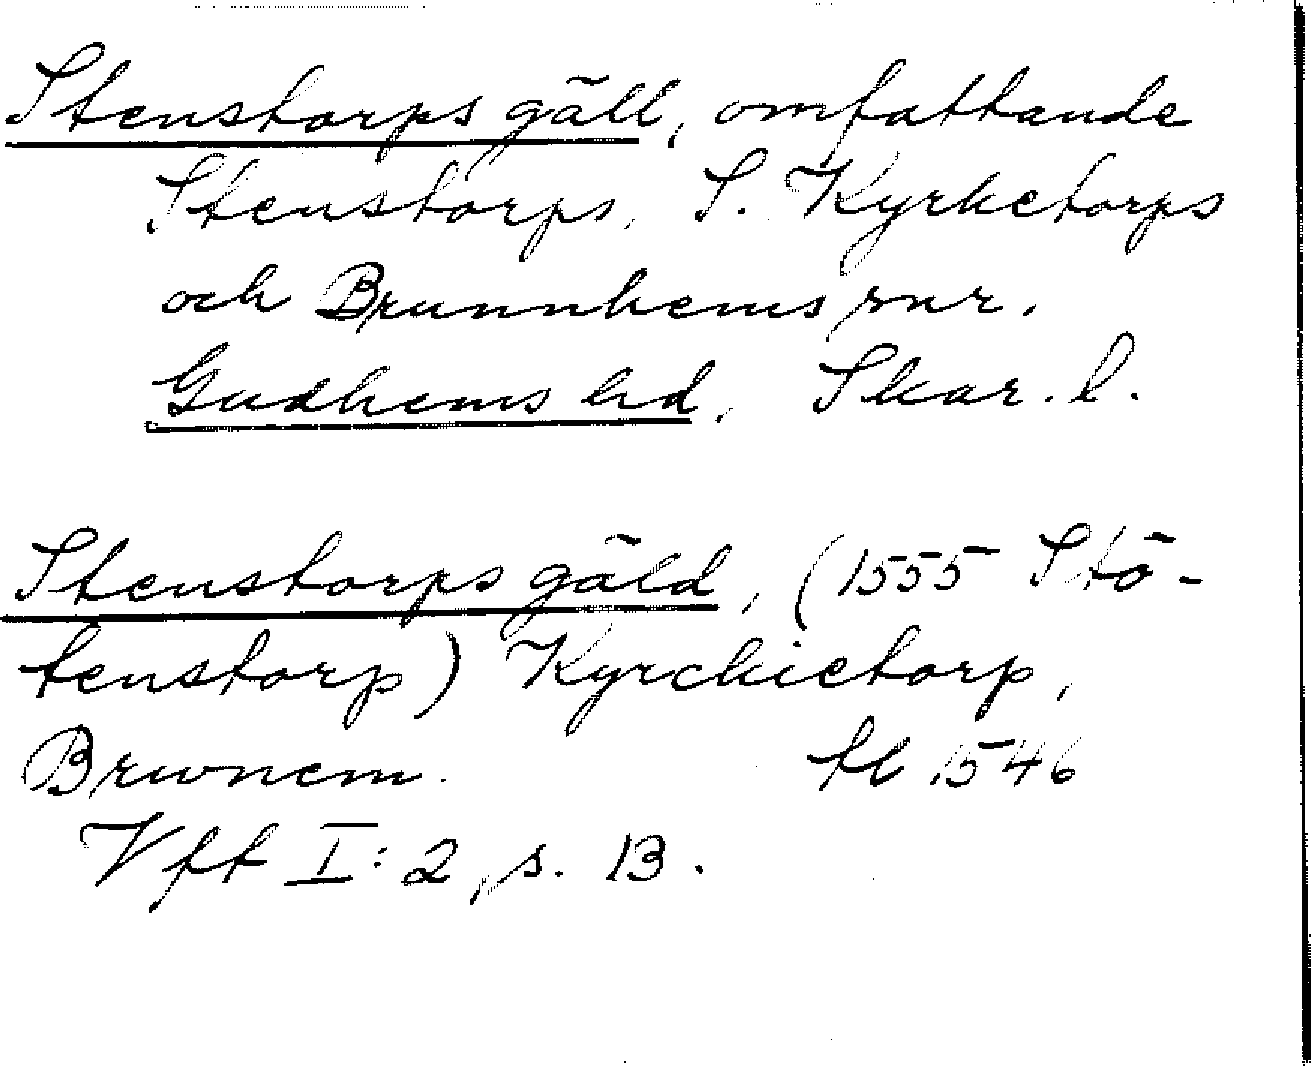 Stenstorps gäll, omfattande
Stenstorps, S. Kyrketorps
och Brunnhems snr.
Gudhems hd, Skar. l.
Stenstorps gäld, (1555 Stö-
tenstorp) Kyrckietorp,
Brwnem. fl 1546
Vft I:2, s. 13.